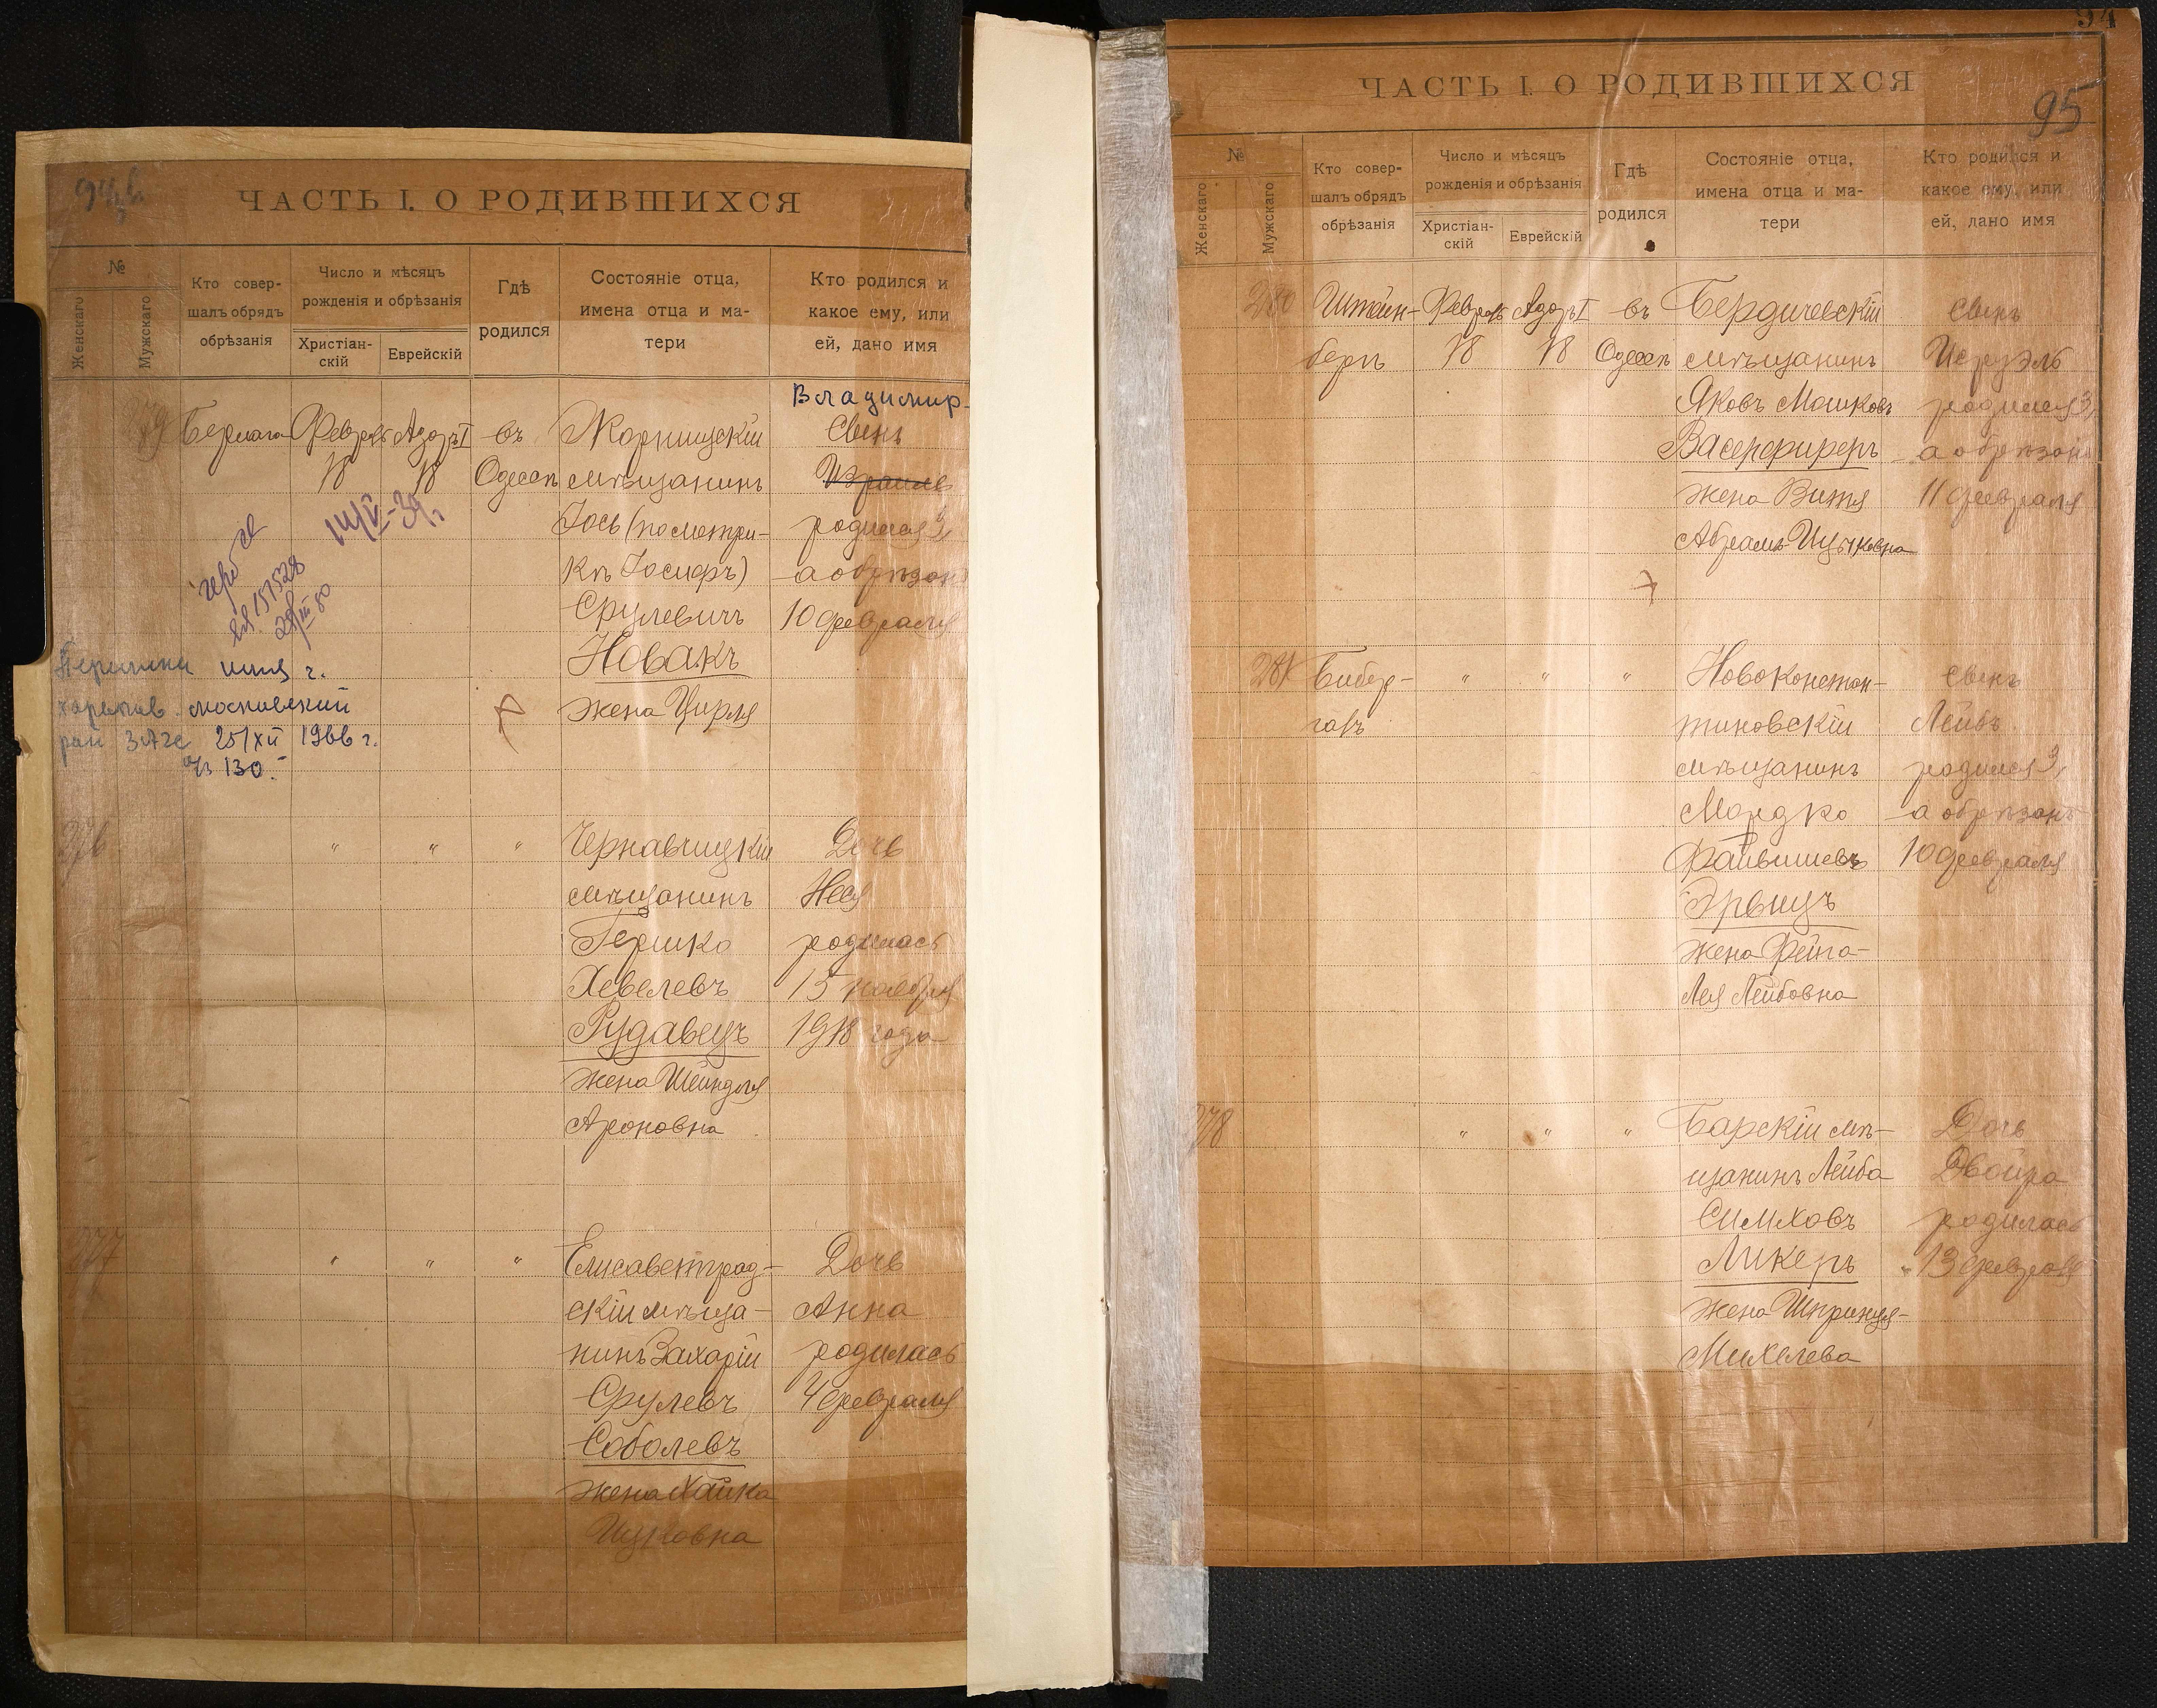 ЧАСТЬ I. О РОДИВШИХСЯ
№
Женскаго
Мужскаго
Кто совер-
шалъ обрядъ
обрѣзанія
Число и мѣсяцъ
рожденія и обрѣзанія
Христіан-
скій
Еврейскій
Гдѣ
родился
Состояніе отца,
имена отца и ма-
тери
Кто родился и
какое ему, или
ей, дано имя
Владимир
Февраль Адаръ I въ
18 18 Одессѣ
мѣщанинъ
Іось (по метри-
кѣ Іосифъ)
Срулевичъ
Новакъ
жена Цирля
Сынъ
Израиль
родился 3,
а обрѣзанъ
10 февраля
14/V-39 г.
151528
имя г.
московский
ЗАГС 25/XII 1966 г.
№ 130.
276
" " "
Чернавчицкій
мѣщанинъ
Гершко
Хевелевъ
Рудавецъ
жена Шейндля
Ароновна
Дочь
Неся
родилась
15 ноября
1918 года
277
" " "
Елисаветград-
скій мѣща-
нинъ Захарій
Срулевъ
Соболевъ
жена Хайка
Ицковна
Дочь
Анна
родилась
4 февраля
94
95
ЧАСТЬ I. О РОДИВШИХСЯ
№
Женскаго
Мужскаго
Кто совер-
шалъ обрядъ
обрѣзанія
Число и мѣсяцъ
рожденія и обрѣзанія
Христіан-
скій
Еврейскій
Гдѣ
родился
Состояніе отца,
имена отца и ма-
тери
Кто родился и
какое ему, или
ей, дано имя
280
Штейн-
бергъ
Февраль Адаръ I въ
18 18 Одессѣ
Бердичевскій
мѣщанинъ
Яковъ Мошковъ
Васерфиреръ
жена Витя
Абрамъ-Ицыковна
Сынъ
Исруэль
родился 3,
а обрѣзанъ
11 февраля
281
Бибер-
галъ
" " "
Новоконстан-
тиновскій
мѣщанинъ
Мордко
Файвишевъ
Эрвицъ
жена Фейга-
Лея Лейбовна
Сынъ
Лейбъ
родился 3,
а обрѣзанъ
10 февраля
278
" " "
Барскій мѣ-
щанинъ Лейба
Симховъ
Ликеръ
жена Шпринця-
Михелева
Дочь
Двойра
родилась
13 февраля